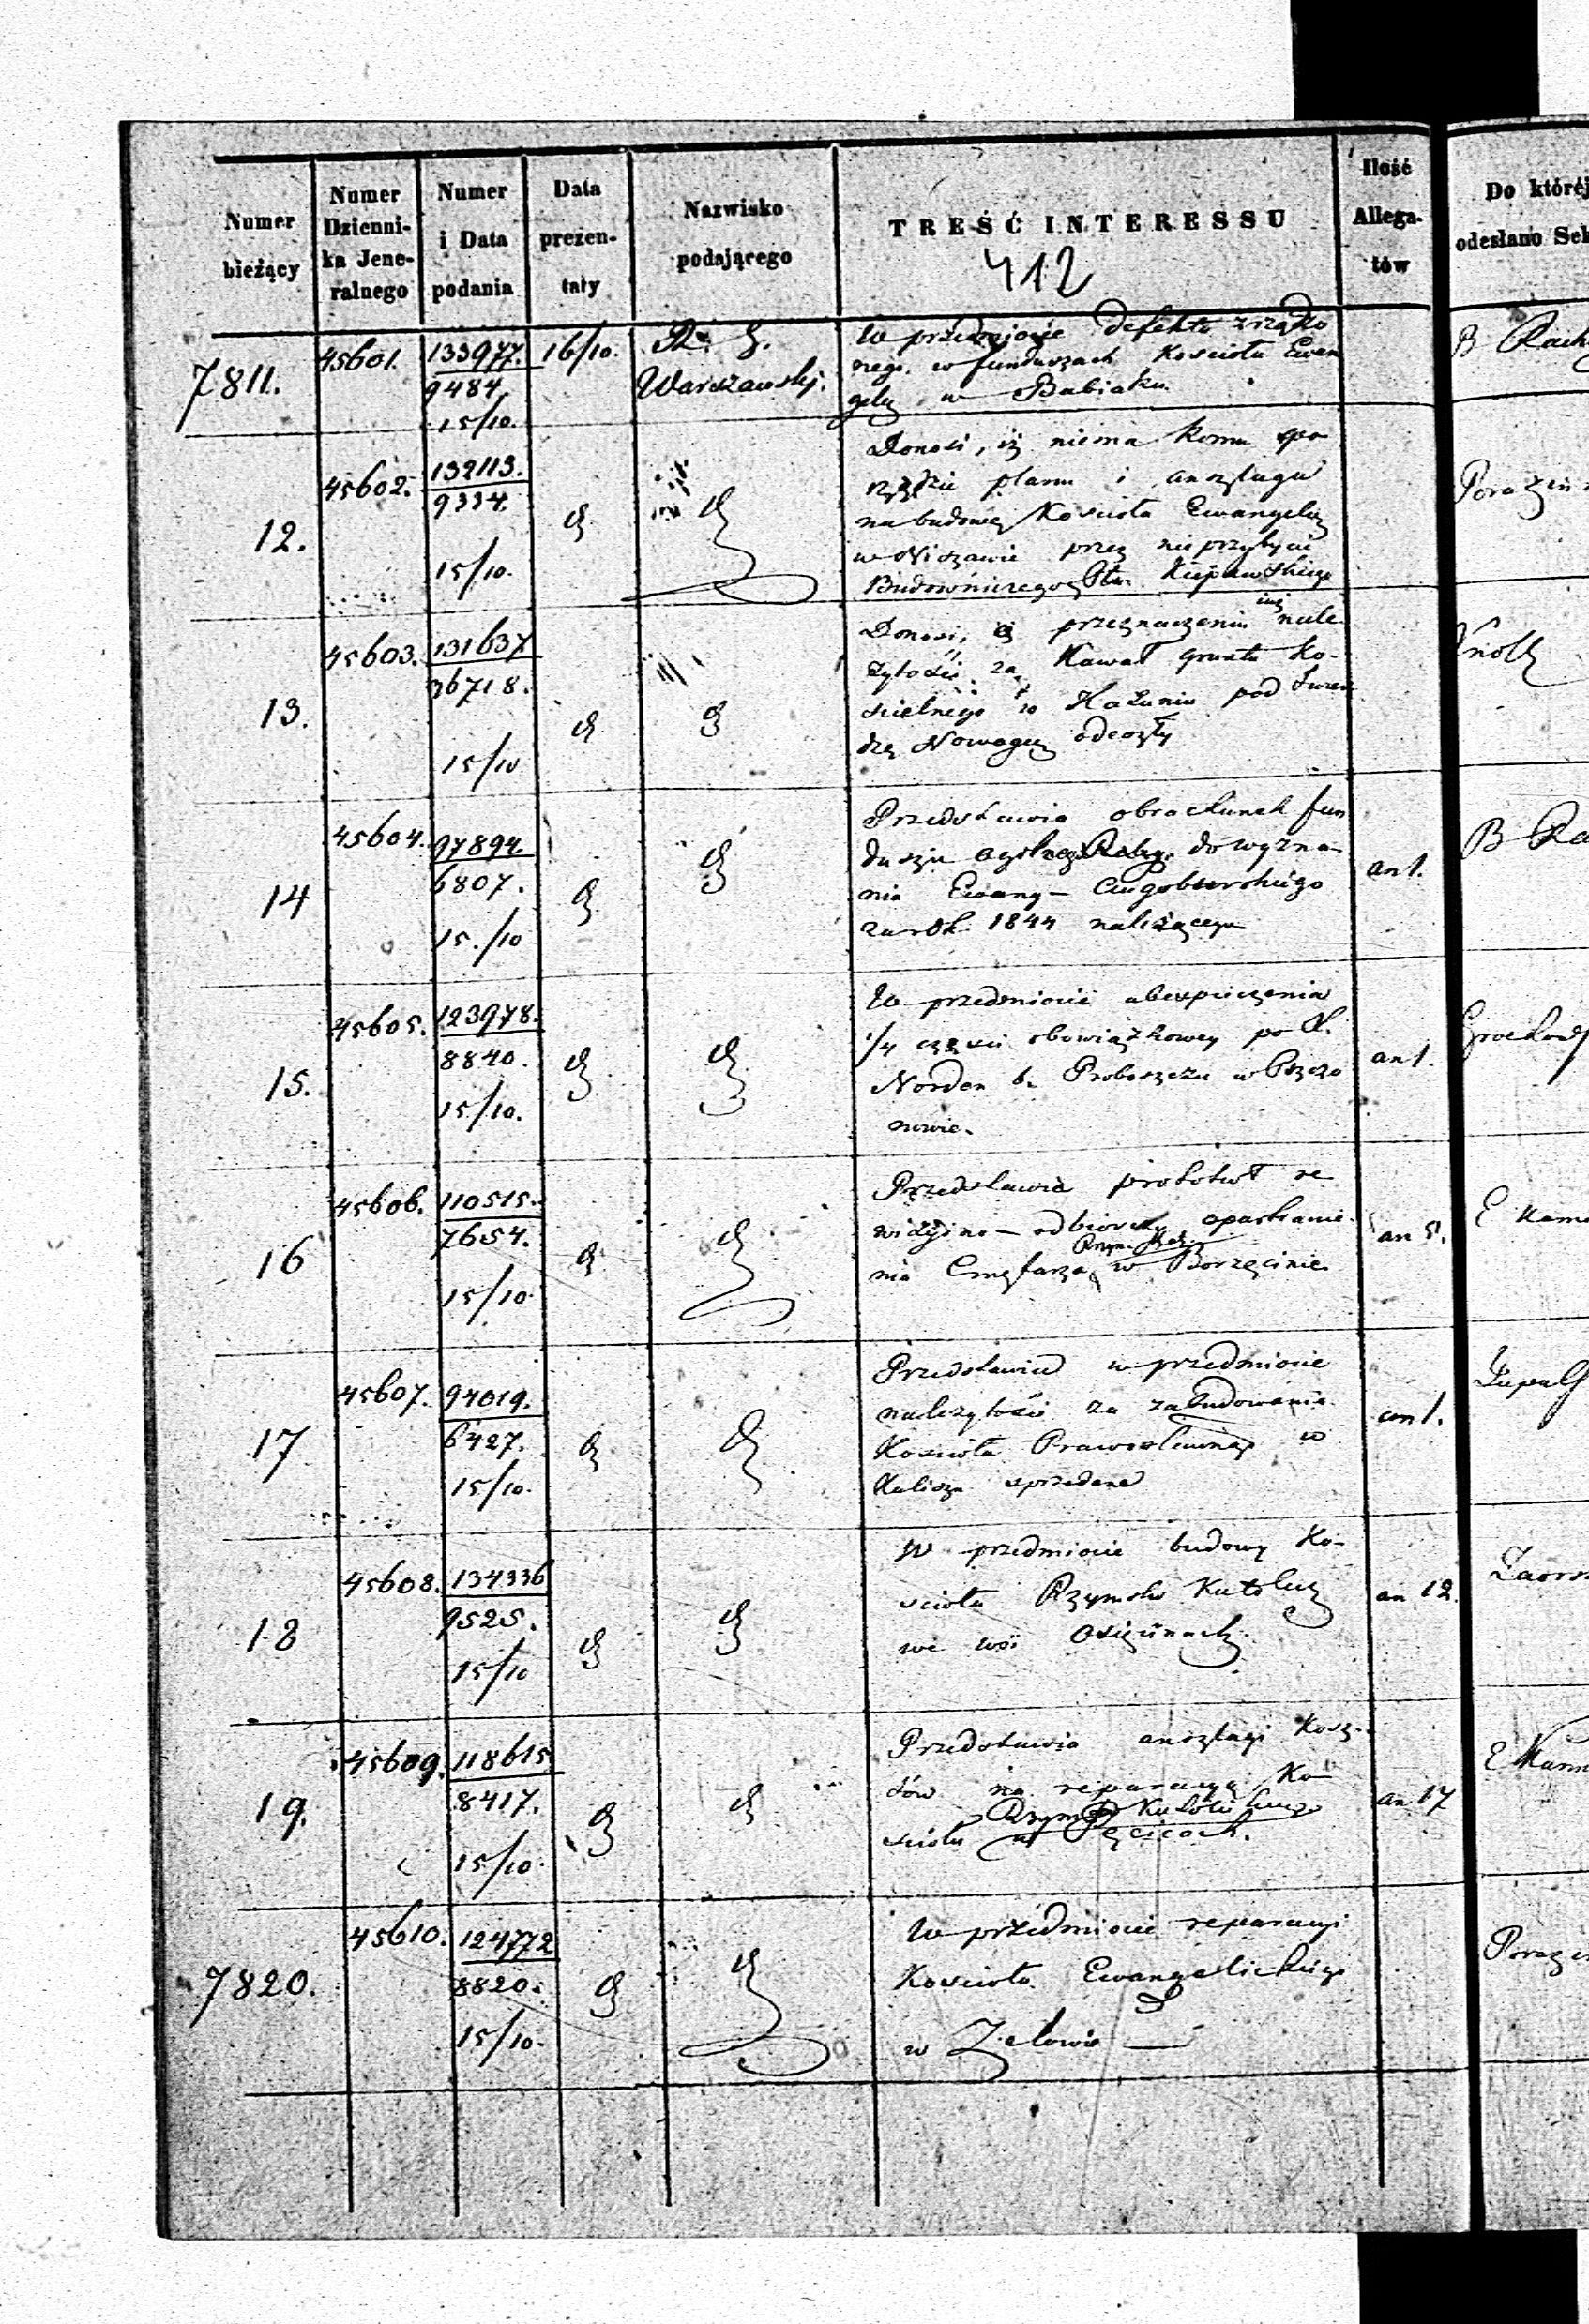 Numer bieżący
Numer Dzienni-ka Jene-ralnego
Numer i Data podania
Data prezen-taty
Nazwisko podającego
TREŚĆ INTERESSU
Ilość Allega-tów
Do któréj
odesłano Sek
412
7811.
45601.
133977.
9484
15/10.
16/10.
R. G.
Warszawski.
W przedmiocie defektu zrządzo
nego w funduszach Kościoła Ewan
gelic w Babiaku.
B Rach
12.
45602.
132113.
9334.
15/10.
Donosi, iż niema komu spo
rządzić planu i anszlagu
na budowę Kościoła Ewangelic
w Niszawie przez nieprzybycie
Budowniczego Ptu Kujawskiego
13.
45603.
131637
36718.
15/10
Donosi, iż przeznaczenia nale
żytości za Kawał gruntu Ko-
scielnego w Kazuniu pod
Nowogie odeszły
14
45604.
97894
6807.
15./10
Przedstawia obrachunek fun
duszu do wyzna
nia Ewang- Augsburskiego
za rok 1844 należącego
an 1.
B Ra
15.
45605.
123978.
8840.
15/10.
W przedmiocie ubezpieczenia
1/4 części obowiązkowey po X.
Norden b. Proboszczu w Pszczo
nowie.
an 1.
16
45606.
110515.
7654.
15/10
Przedstawia protokoł re
wizyino-odbiorczy oparkanie
Rzym. Kat.
nia Cmętarza w Borzęcinie
an 5.
E Kam
17
45607.
94019.
6427.
15/10.
Przedstawia w przedmiocie
należytości za zabudowania
Kościoła Prawosławnego w
Kaliszu sprzedane
an 1.
18
45608.
134336
9525.
15/10
W przedmiocie budowy Ko-
scioła Rzymsko Katolic
we wsi Osięcinach
an 12.
19.
45609.
118615
8417.
15/10.
Przedstawia anszlagi Kosz-
tów na reparacyą Ko
Rzymsko Katolickiego
scioła w Pęcicach.
an 17
E Kam
7820.
45610.
124772
8820.
15/10.
W przedmiocie reparacyi
Kościoła Ewangelickiego
w Zelowie